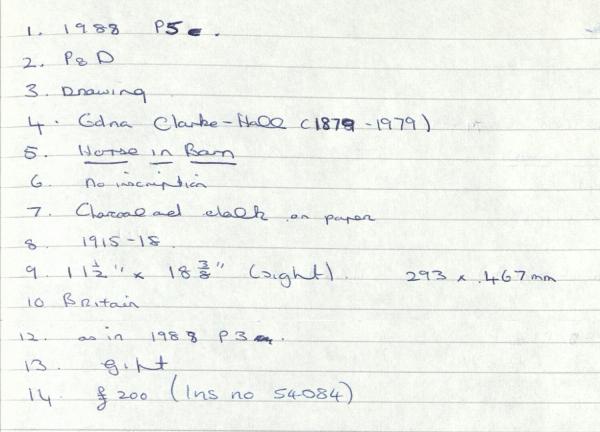 1. 1988 P5.
2. P&D
3. Drawing
4. Edna Clarke-Hall (1879-1979)
5. Horse in Barn
6. no inscription
7. Charcoal and chalk on paper
8. 1915-18.
9. 11 1/2" x 18 3/8" (sight). 293 x 467mm
10 Britain
12. as in 1988 P3.
13. gift
14. £200 (Ins no 54084)